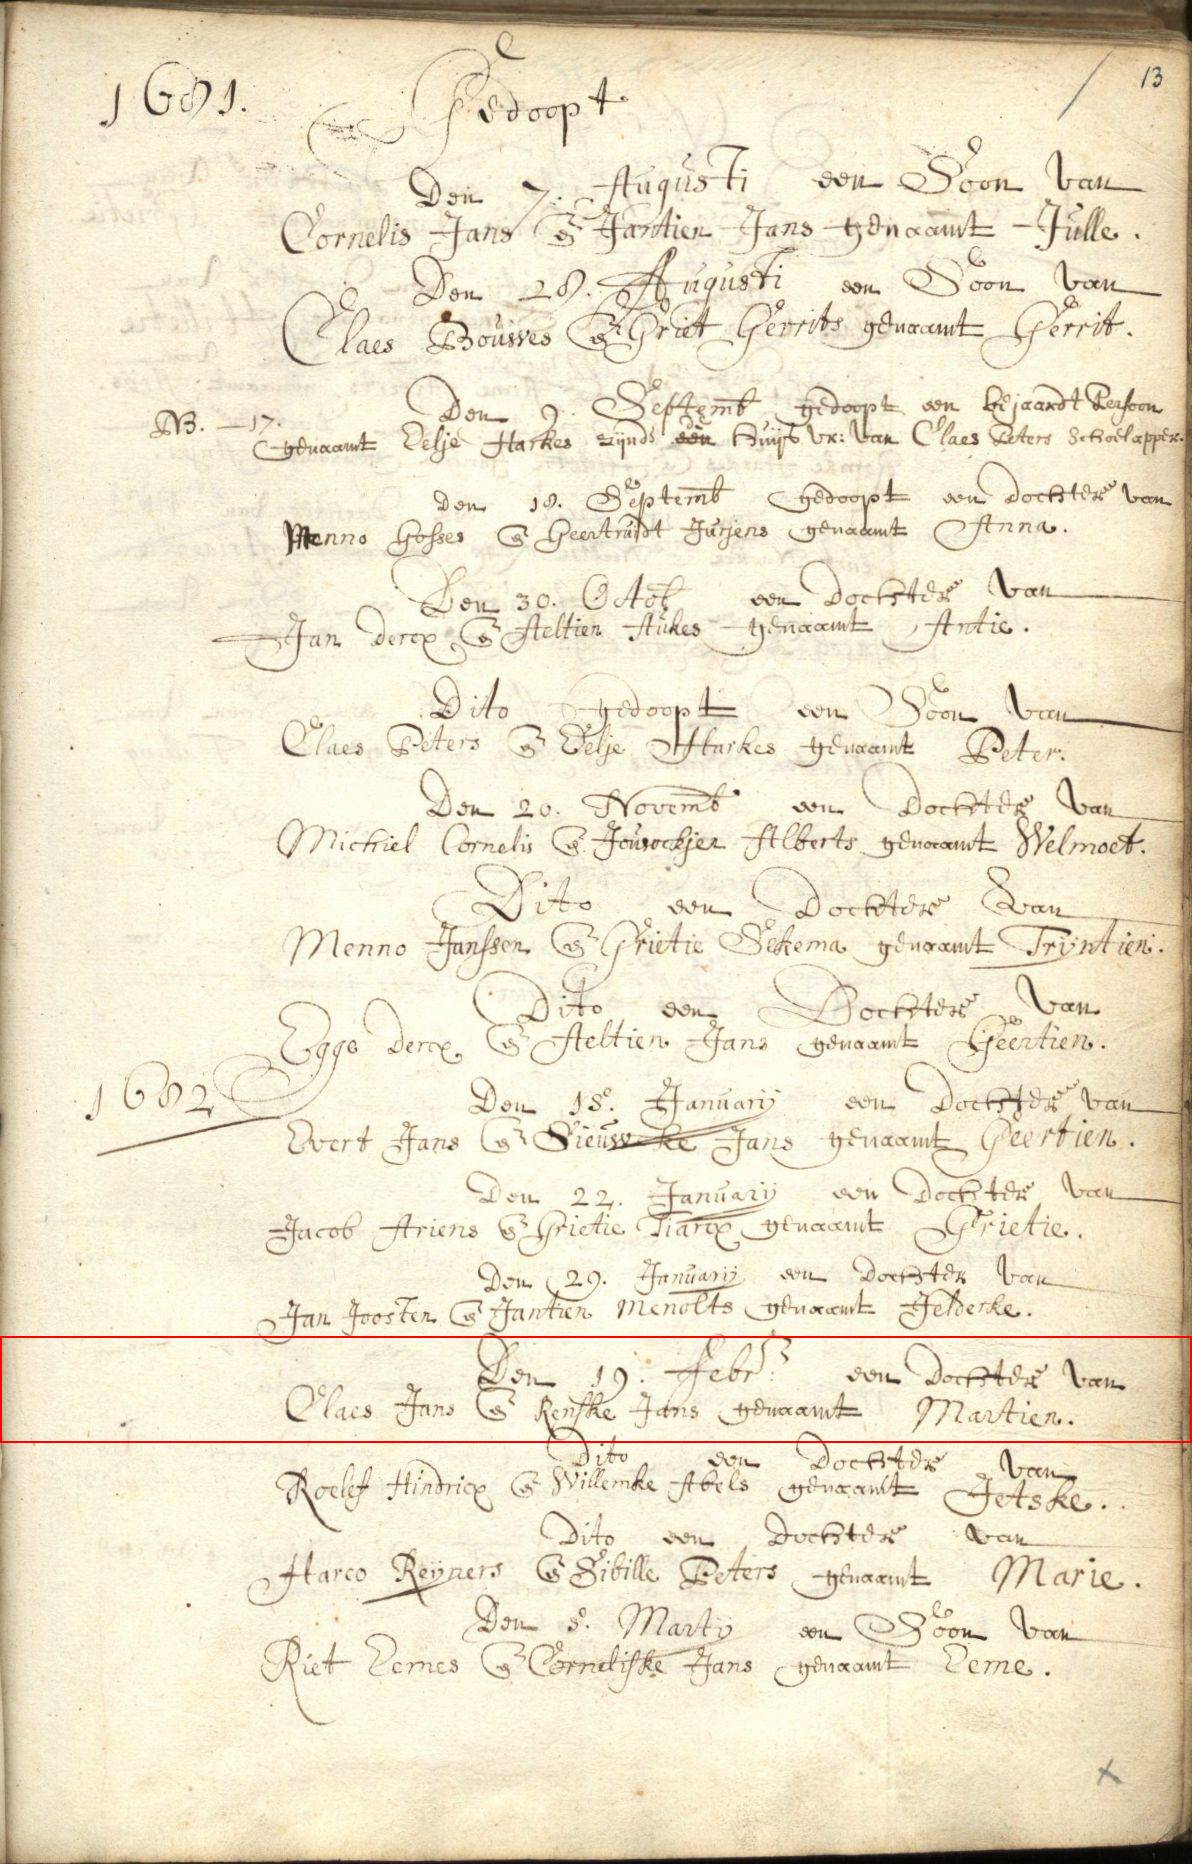 13
1681. Gedoopt.
Den 7. Augusti een Soon van
Cornelis Jans & Jantien Jans genaamt Julle.
Den 28. Augusti een Soon van
Claes Bouwes & Griet Gerrits genaamt Gerrit.
Den 9. Septemb gedoopt een bejaardt Persoon
NB. 17. genaamt Eelje Harkes zijnde een Huijs vr: van Claes Peters Schoelapper.
Den 18. Septemb gedoopt een Dochter van
Menno Gosses & Geertruidt Jurjens genaamt Anna.
Den 30. Octob een Dochter van
Jan Dercx & Aeltien Aukes genaamt Antie.
Dito gedoopt een Soon van
Claes Peters & Eelje Harkes genaamt Peter.
Den 20. Novemb een Dochter van
Michiel Cornelis & Alberts genaamt Welmoet.
Dito een Dochter van
Menno Janssen & Grietie Sekema genaamt Tryntien.
Dito een Dochter van
Egge Dercx & Aeltien Jans genaamt Geertien.
1682 Den 15. January een Dochter van
Evert Jans & Sieuwke Jans genaamt Geertien.
Den 22. January een Dochter van
Jacob Ariens & Grietie Tiarcx genaamt Grietie.
Den 29. January een Dochter van
Jan Joosten & Jantien Menolts genaamt Jelderke.
Den 19. Febr: een Dochter van
Claes Jans & Renske Jans genaamt Martien.
Dito een Dochter van
Roelef Hindricx & Willemke Abels genaamt Jetske.
Dito een Dochter van
Harco Reyners & Sibille Peters genaamt Marie.
Den 5. Marty een Soon van
Riet Eemes & Corneliske Jans genaamt Eeme.